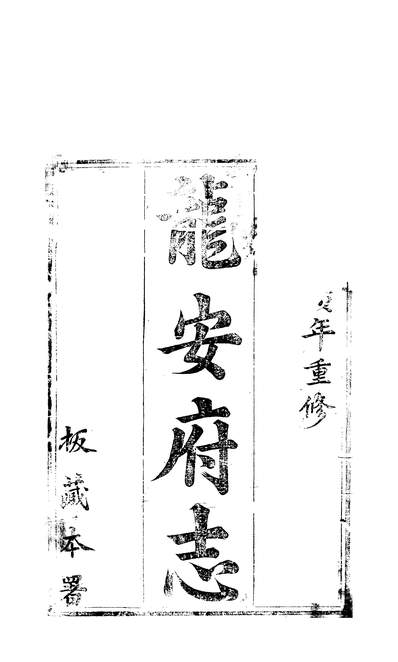 年重修
龍安府志
板藏本署